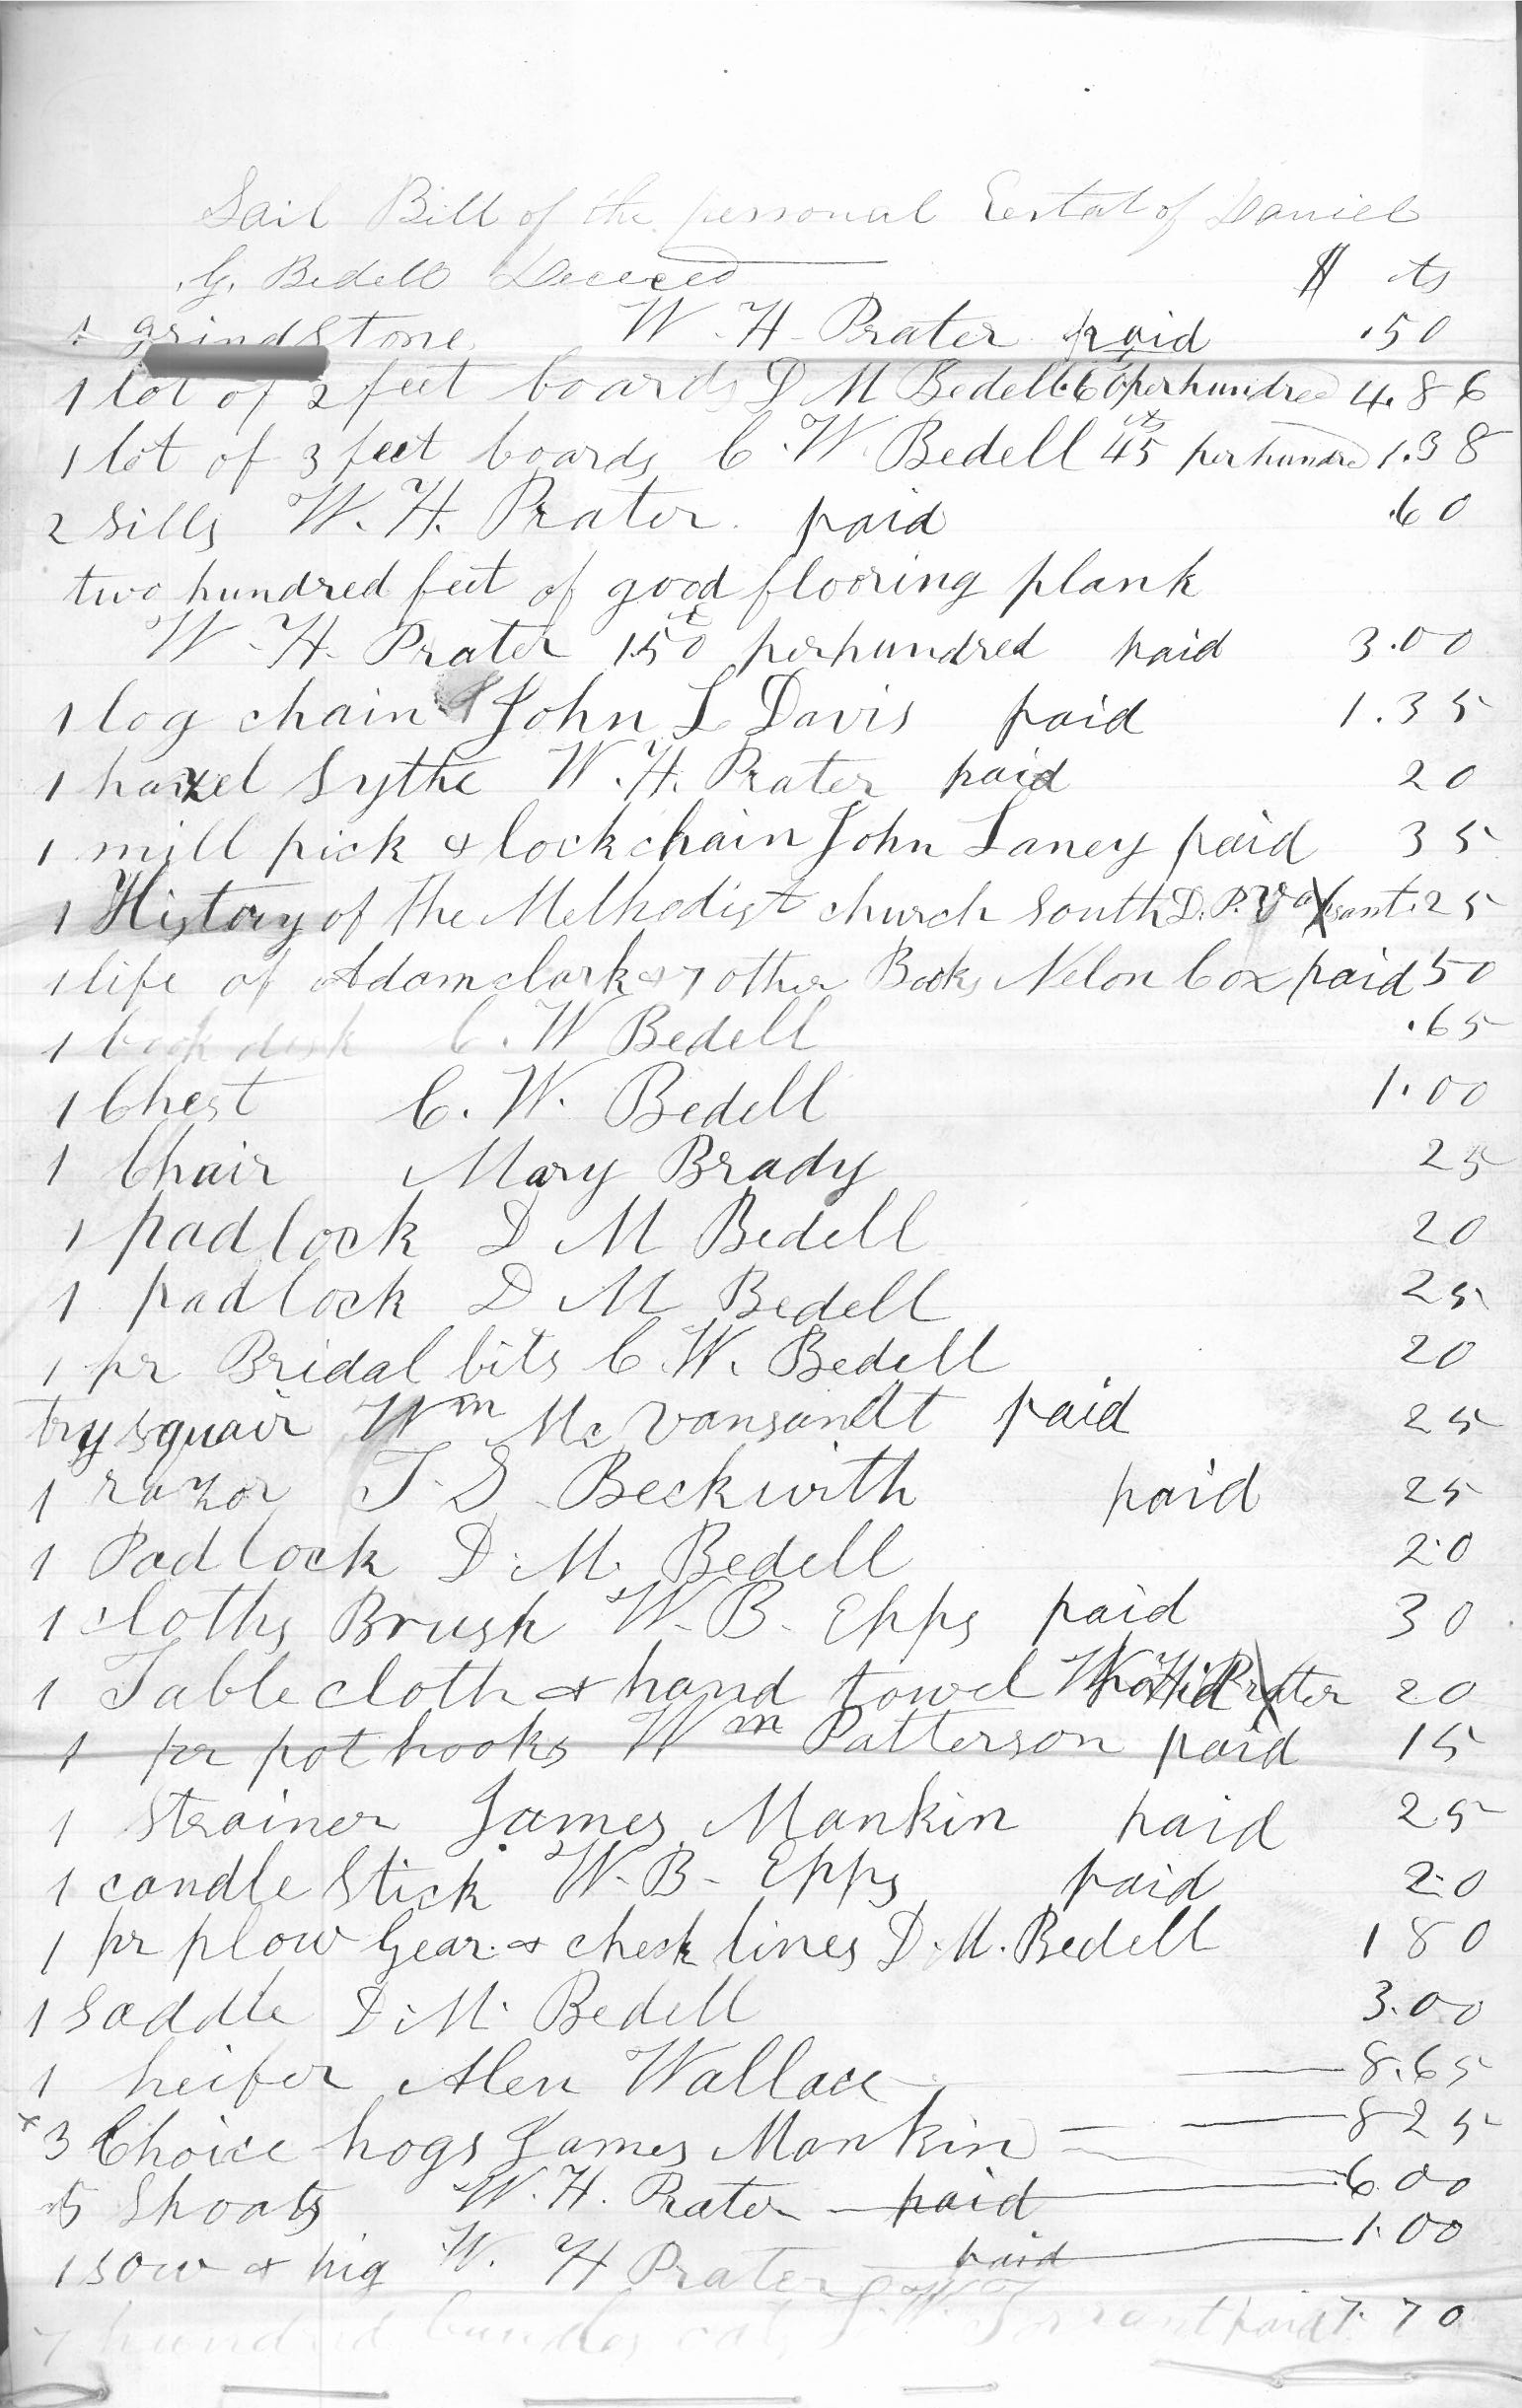 Sail Bill of the personal Eestat of Daniel
G. Bedell Dececed
$ cts
1 grindstone W. H. Prater paid .50
1 lot of 2 feet boards D M Bedell .60 per hundred 4.86
1 lot of 3 feet boards C. W. Bedell 45 cts per hundred 1.38
2 Sills W. H. Prater. paid .60
two hundred feet of good flooring plank
W. H. Prater 1.50 per hundred paid 3.00
1 log chain John L Davis paid 1.35
1 Sythe W. H. Prater paid 20
1 mill pick & lock chain John Laney paid 35
1 History of the Methodist church South D. P. 25
1 life of Adam clark & 7 other Books Nelon Cox paid 50
1 book desk C. W Bedell .65
1 Chest C. W. Bedell 1.00
1 Chair Mary Brady 25
1 pad lock D M Bedell 20
1 pad lock D M Bedell 25
1 pr Bridal bits C. W. Bedell 20
try squair Wm Mc Vansandt paid 25
1 razor T. S. Beckwith paid 25
1 Pad lock D. M. Bedell 20
1 cloths Brush W. B. Epps paid 30
1 Table cloth & hand towel W. H. Prater paid 20
1 pr pot hooks Wm Patterson paid 15
1 Strainer James Mankin paid 25
1 candle Stick W. B. Epps paid 20
1 pr plow Gear & check lines D. M. Bedell 1 80
1 Saddle D. M. Bedell 3.00
1 heifer Alen Wallace 8.65
x 3 Choice hogs James Mankin 8 25
5 Shoats W. H. Prater paid 6.00
1 sow & pig W. H Prater paid 1.00
7 hundred bundles oats paid 7.70